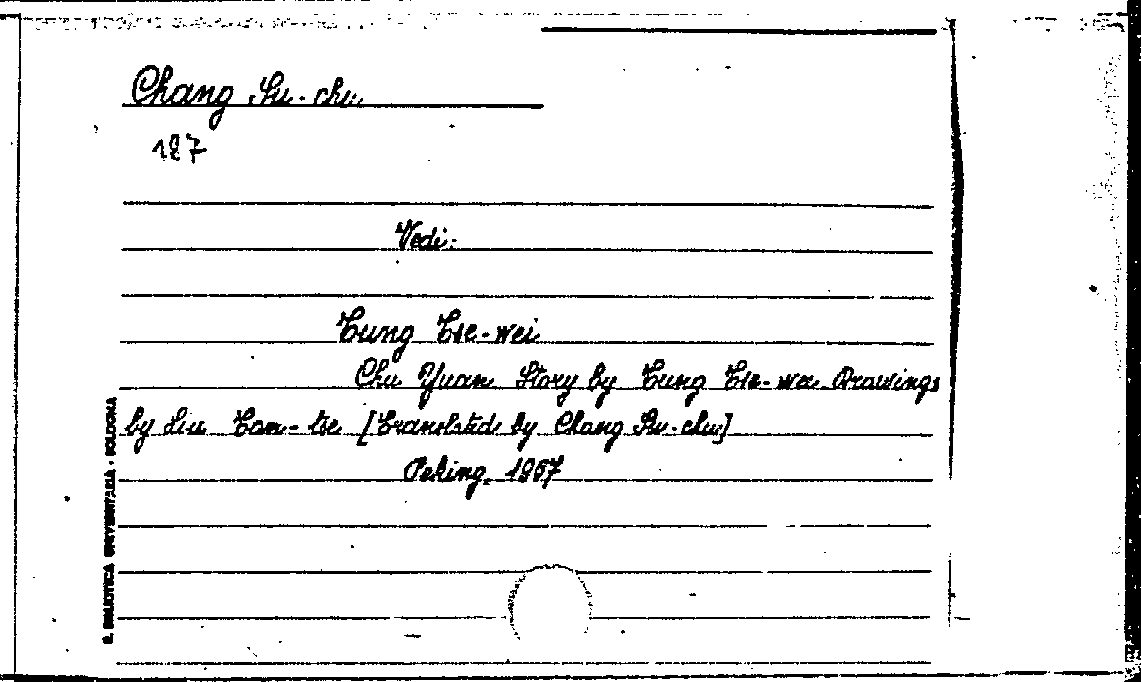 Chang Su-chu
127
Vedi:
Tung Tse-wei
Chu Yuan Story by Tung Tse-wei Drawings
by Liu Tan-tse [Translated by Chang Su-chu]
Peking, 1957
B. BIBLIOTECA UNIVERSITARIA - BOLOGNA